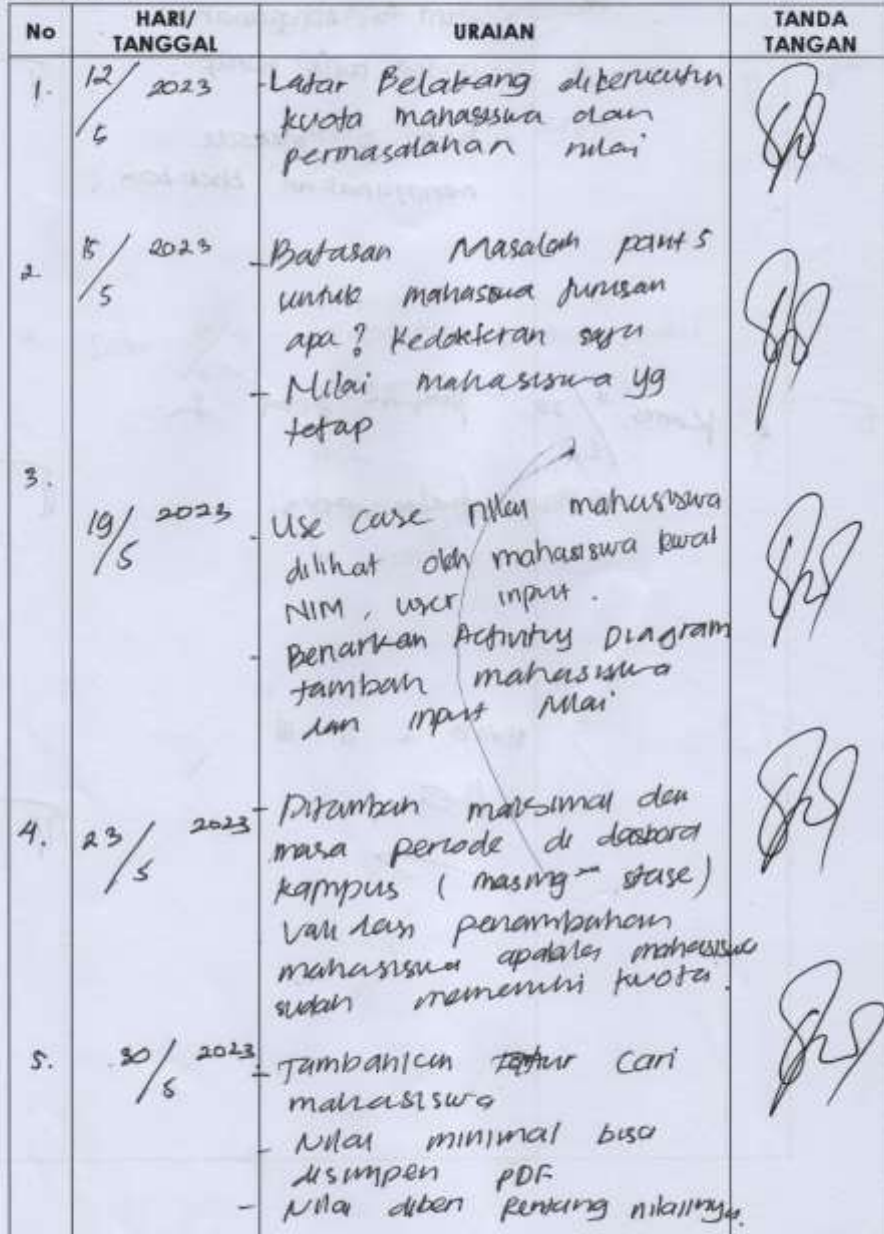 No HARI/ TANGGAL URAIAN TANDA TANGAN
1. 12/5 2023 - Latar Belakang
kuota mahasiswa dan
permasalahan nilai
2 15/5 2023 - Batasan Masalah point 5
untuk mahasiswa Jurusan
apa? Kedokteran saja
- Nilai mahasiswa yg
tetap
3. 19/5 2023 - Use case nilai mahasiswa
dilihat oleh mahasiswa
NIM, user input.
- Benarkan Activity Diagram
tambah mahasiswa
dan input Nilai
4. 23/5 2023 - Ditambah maksimal dan
masa periode di
kampus (masing" stase)
Validasi penambahan
mahasiswa apabila mahasiswa
sudah memenuhi kuota.
5. 30/5 2023 - Tambahkan Fitur Cari
mahasiswa
- Nilai minimal bisa
disimpen PDF
- Nilai diberi Rentang nilainya.